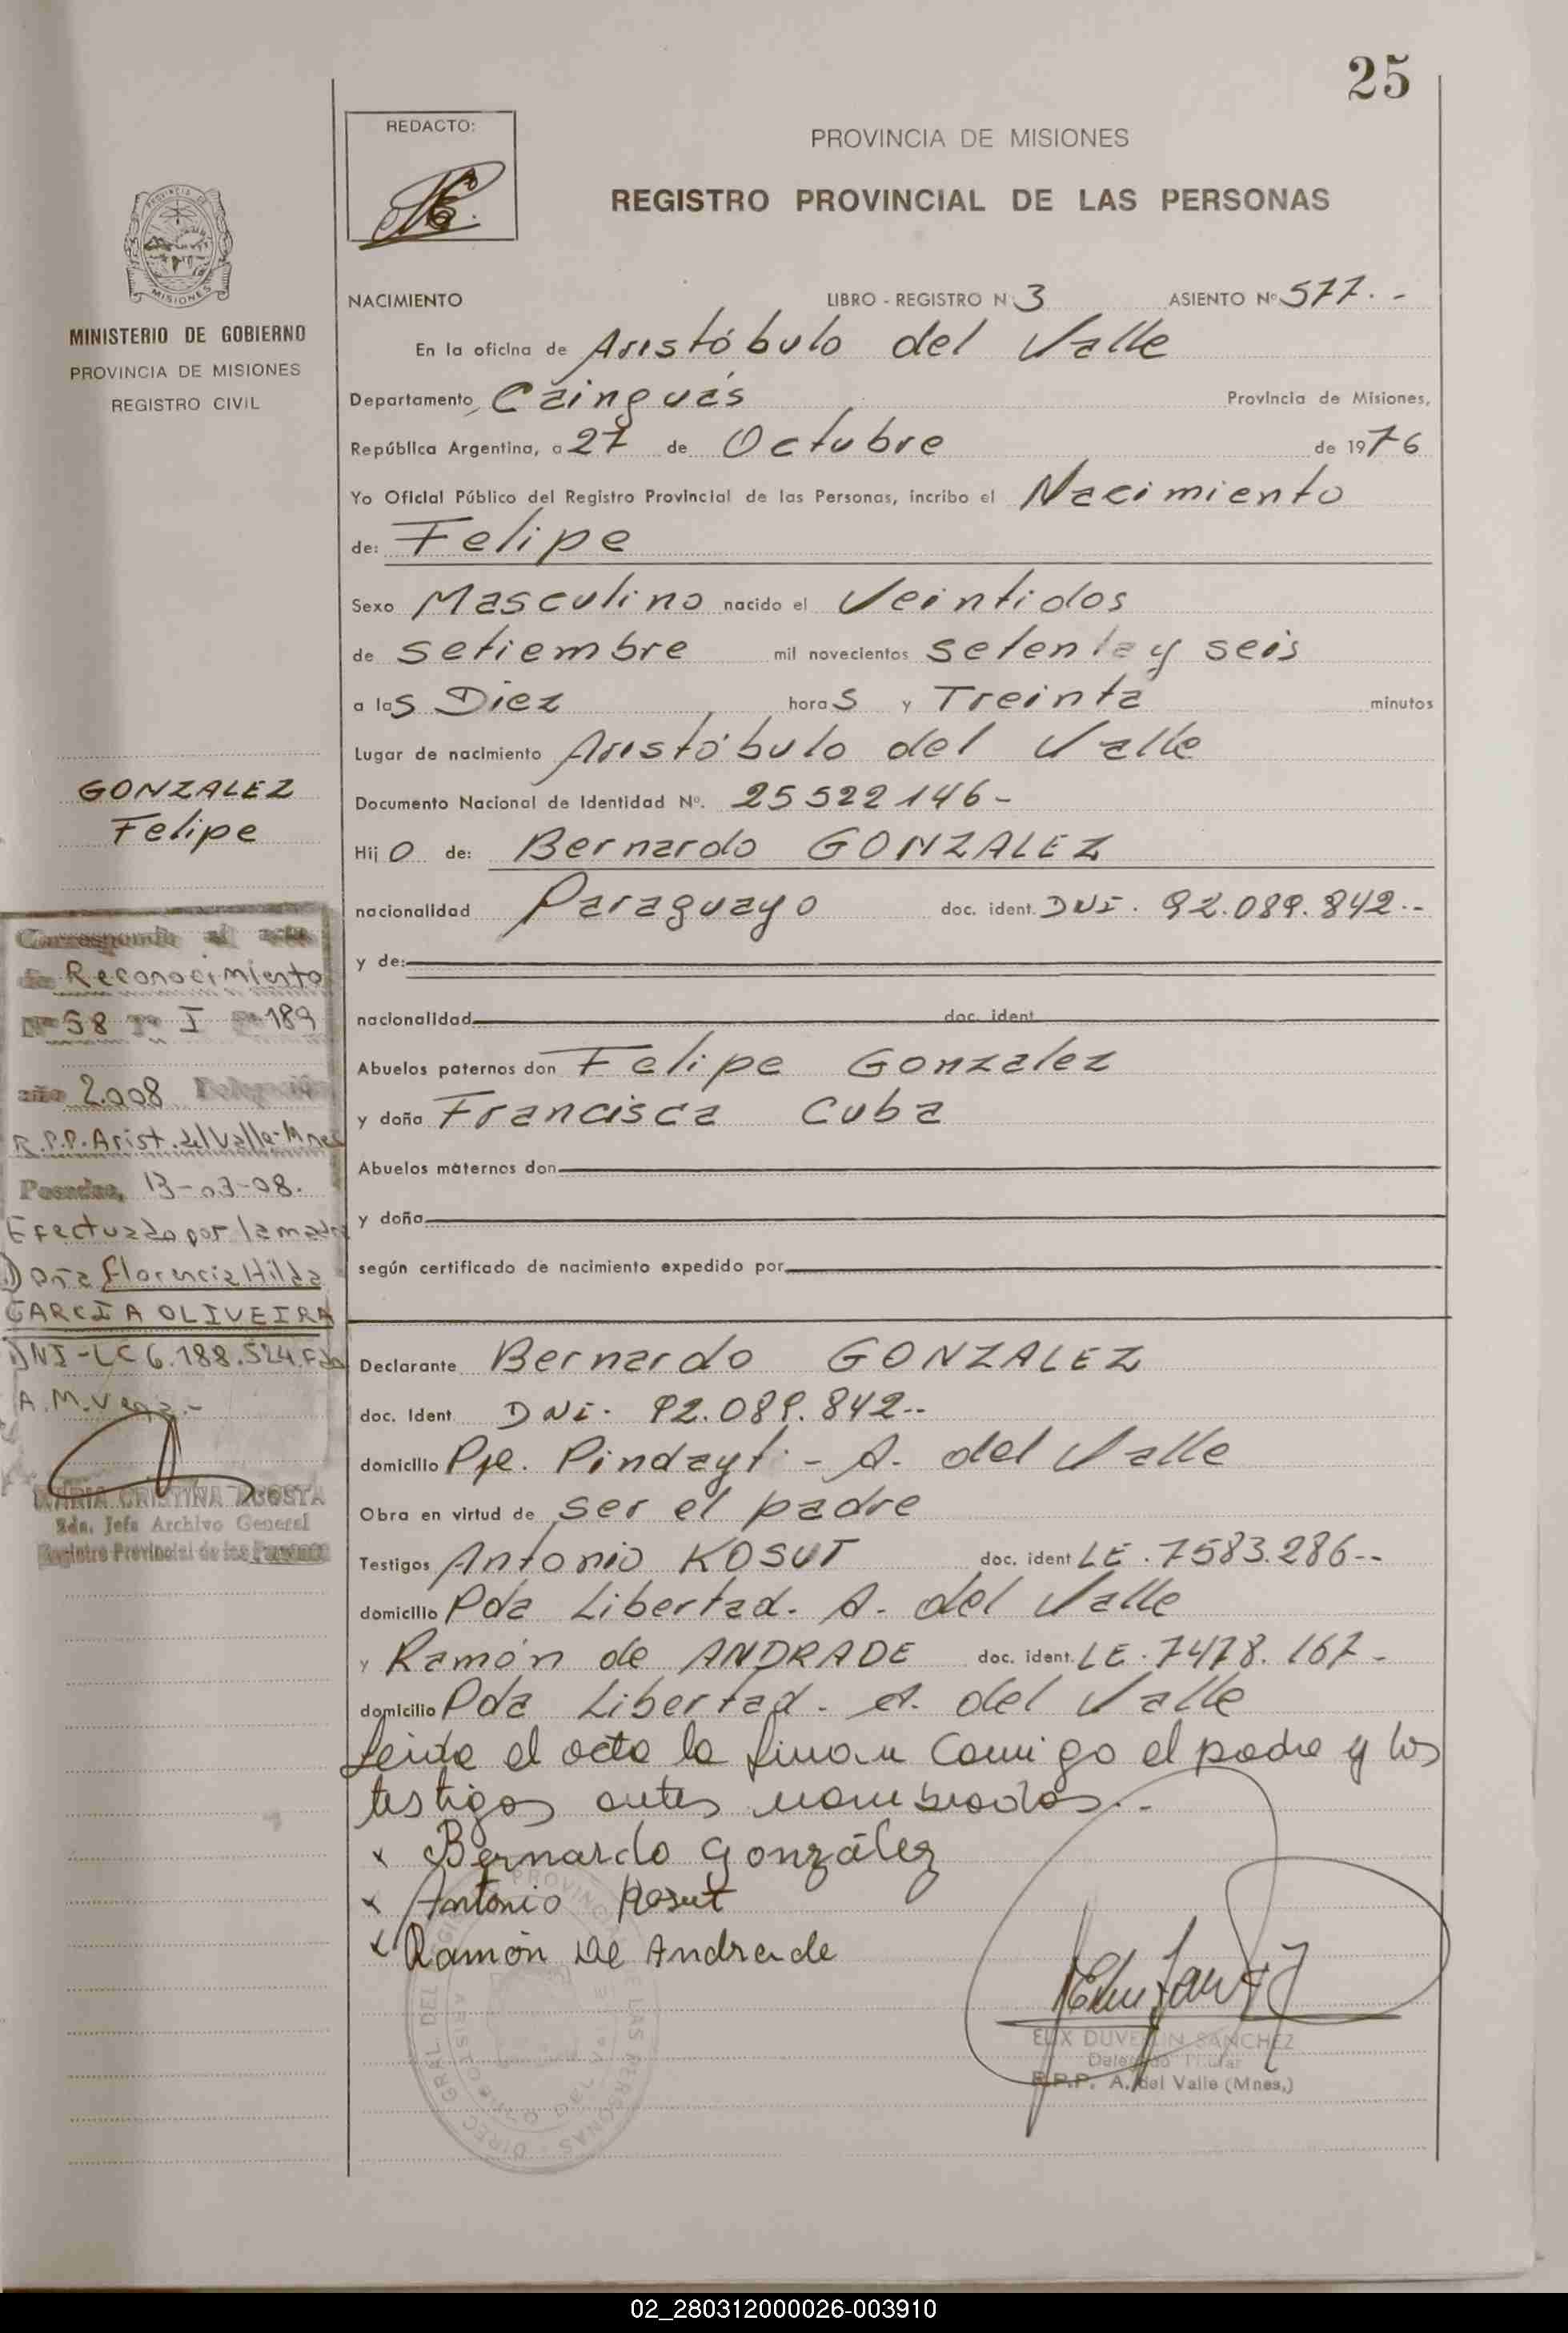 25
REDACTO:
PROVINCIA DE MISIONES
REGISTRO PROVINCIAL DE LAS PERSONAS
PROVINCIA DE
MISIONES
MINISTERIO DE GOBIERNO
PROVINCIA DE MISIONES
REGISTRO CIVIL
NACIMIENTO LIBRO - REGISTRO N 3 ASIENTO Nº 577.-
En la oficina de Aristóbulo del Valle
Departamento, Cainguás Provincia de Misiones,
República Argentina, a 27 de Octubre de 1976
Yo Oficial Público del Registro Provincial de las Personas, incribo el Nacimiento
de: Felipe
Sexo Masculino nacido el Veintidos
de setiembre mil novecientos setenta y seis
a las Diez horas y Treinta minutos
Lugar de nacimiento Aristóbulo del Valle
Documento Nacional de Identidad Nº. 25522146-
Hijo de: Bernardo GONZALEZ
nacionalidad Paraguayo doc. ident. DNI. 92.089.842.-
y de:
nacionalidad doc. ident
Abuelos paternos don Felipe Gonzalez
y doña Francisca Cuba
Abuelos maternos don
y doña
según certificado de nacimiento expedido por
Declarante Bernardo GONZALEZ
doc. Ident DNI. 92.089.842--
domicilio Pje. Pindayti - A. del Valle
Obra en virtud de ser el padre
Testigos Antonio KOSUT doc. ident LE. 7583.286--
domicilio Pda Libertad. A. del Valle
y Ramón de ANDRADE doc. ident. LE. 7478.167-
domicilio Pda Libertad. A. del Valle
Leida el acta la firman comigo el padre y los
testigos antes nombrados.-
x Bernardo González
x Antonio Kosut
x Ramón De Andrade
ELIX DUVERLIN SANCHEZ
Delegado Titular
R.P.P. A. del Valle (Mnes.)
GONZALEZ
Felipe
Corresponde al acta
de Reconocimiento
Nº 58 Tº I Fº 189
año 2.008 Delegación
R.P.P. Arist. del Valle-Mnes
Posadas, 13-03-08.
Efectuado por la madre
Doña Florencia Hilda
GARCIA OLIVEIRA
DNI-LC 6.188.524. Fdo
A.M.Vega.-
MARIA CRISTINA ACOSTA
2da. Jefa Archivo General
Registro Provincial de las Personas
02_280312000026-003910